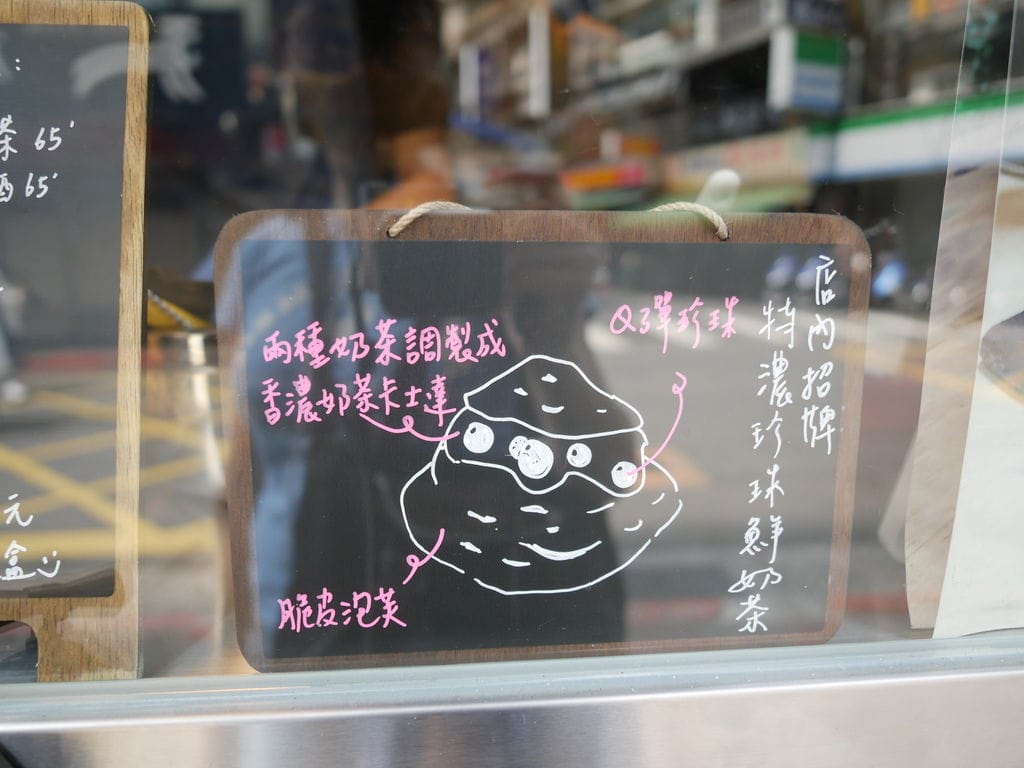 店內招牌
特濃珍珠鮮奶茶
Q彈珍珠
兩種奶茶調製成
香濃奶茶卡士達
脆皮泡芙
:
茶 65'
酒 65'
元
盒